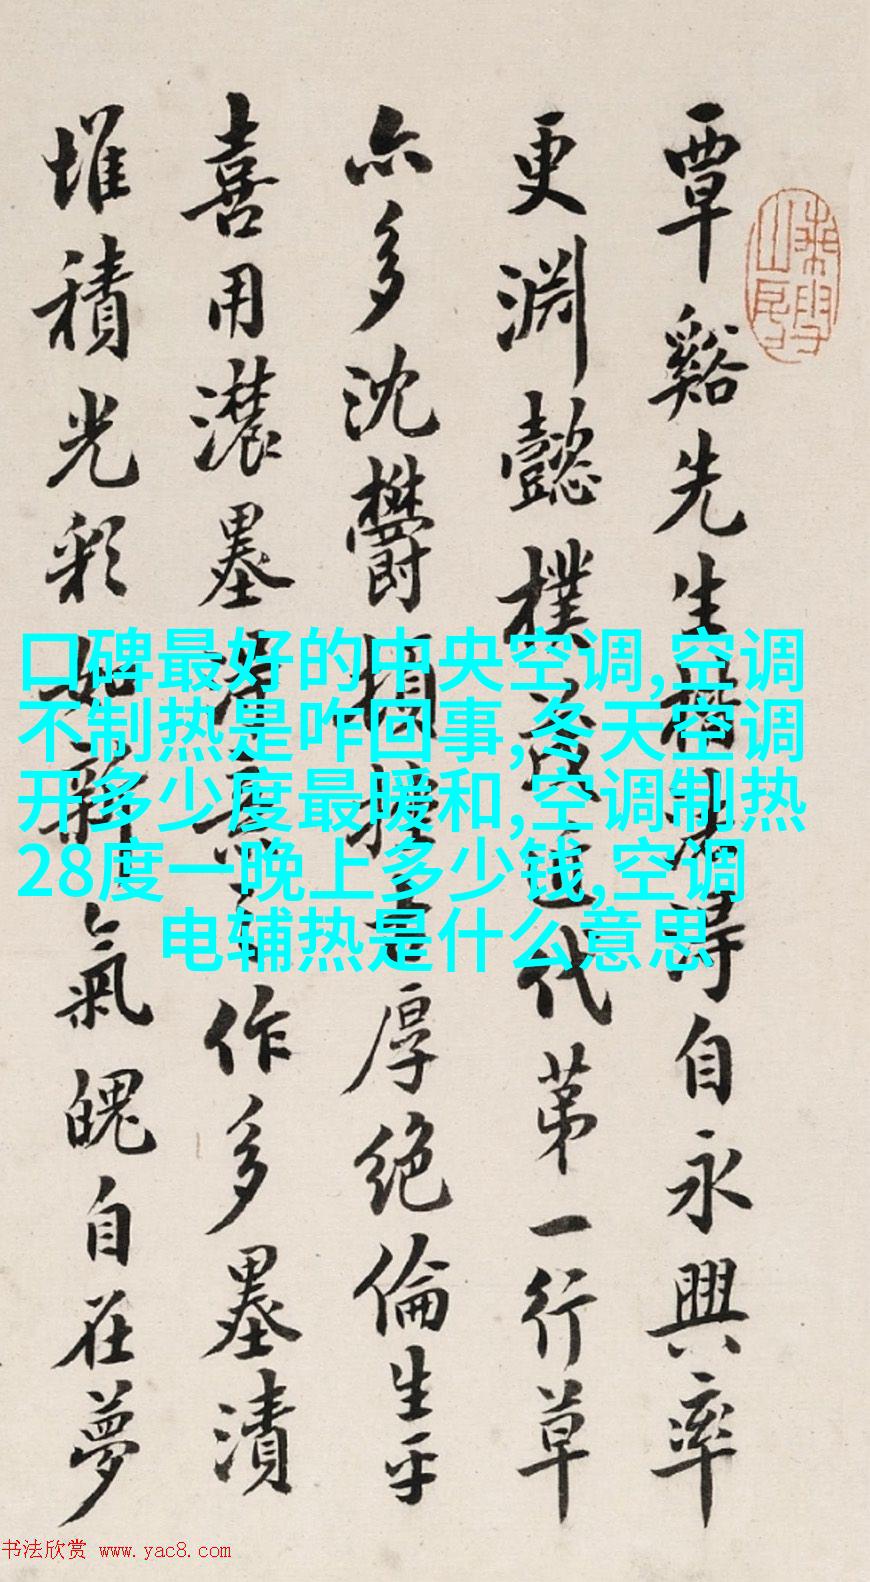 覃谿先生楷書得自永興率
更淵懿樸茂近代第一行草
亦多沈鬱頓挫古厚絕倫生平
喜用濃墨
作多墨漬
堆積光彩如新氣魄自在夢
口碑最好的中央空调,空调
不制热是咋回事,冬天空调
开多少度最暖和,空调制热
28度一晚上多少钱,空调
电辅热是什么意思
书法欣赏 www.yac8.com